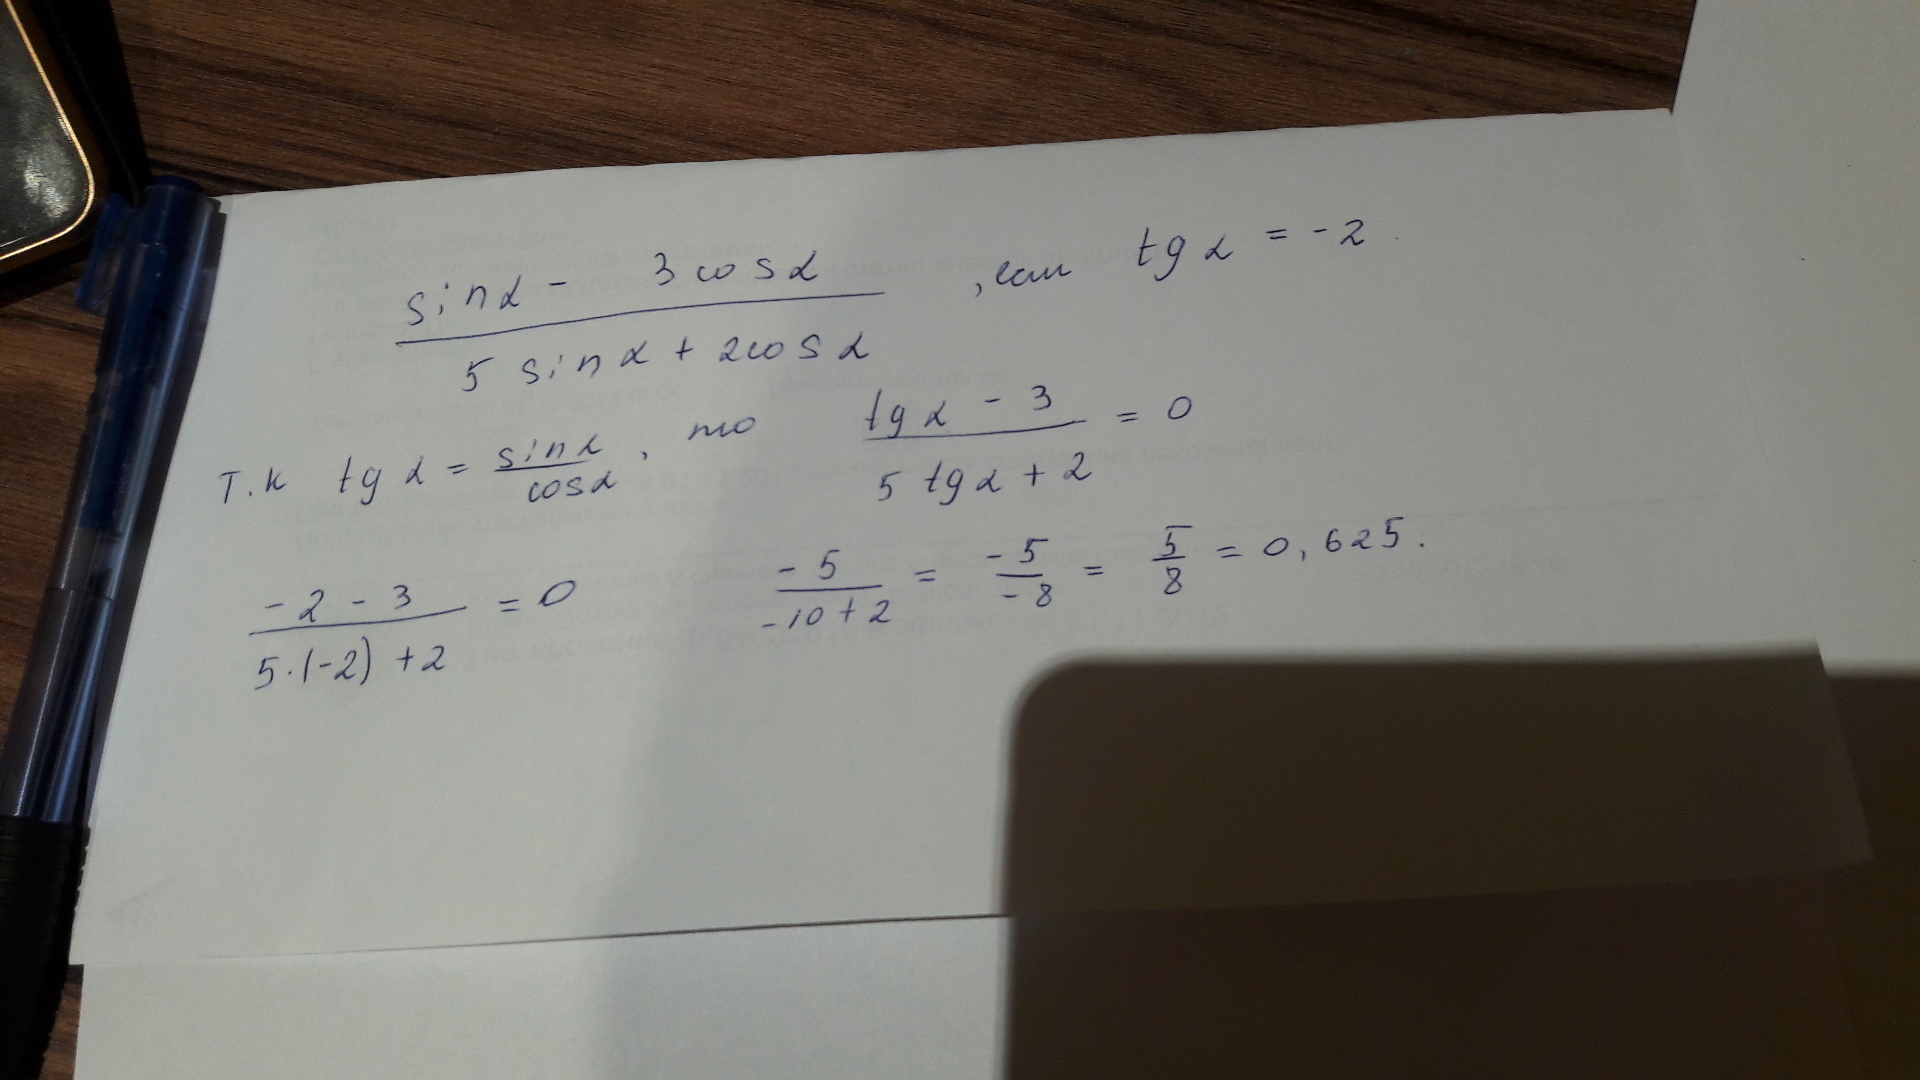 sinα - 3cosα / 5 sinα + 2cosα , если tgα = -2
Т.к tgα = sinα / cosα , то tgα - 3 / 5 tgα + 2 = 0
-2 - 3 / 5·(-2) + 2 = 0 -5 / -10 + 2 = -5 / -8 = 5 / 8 = 0,625.